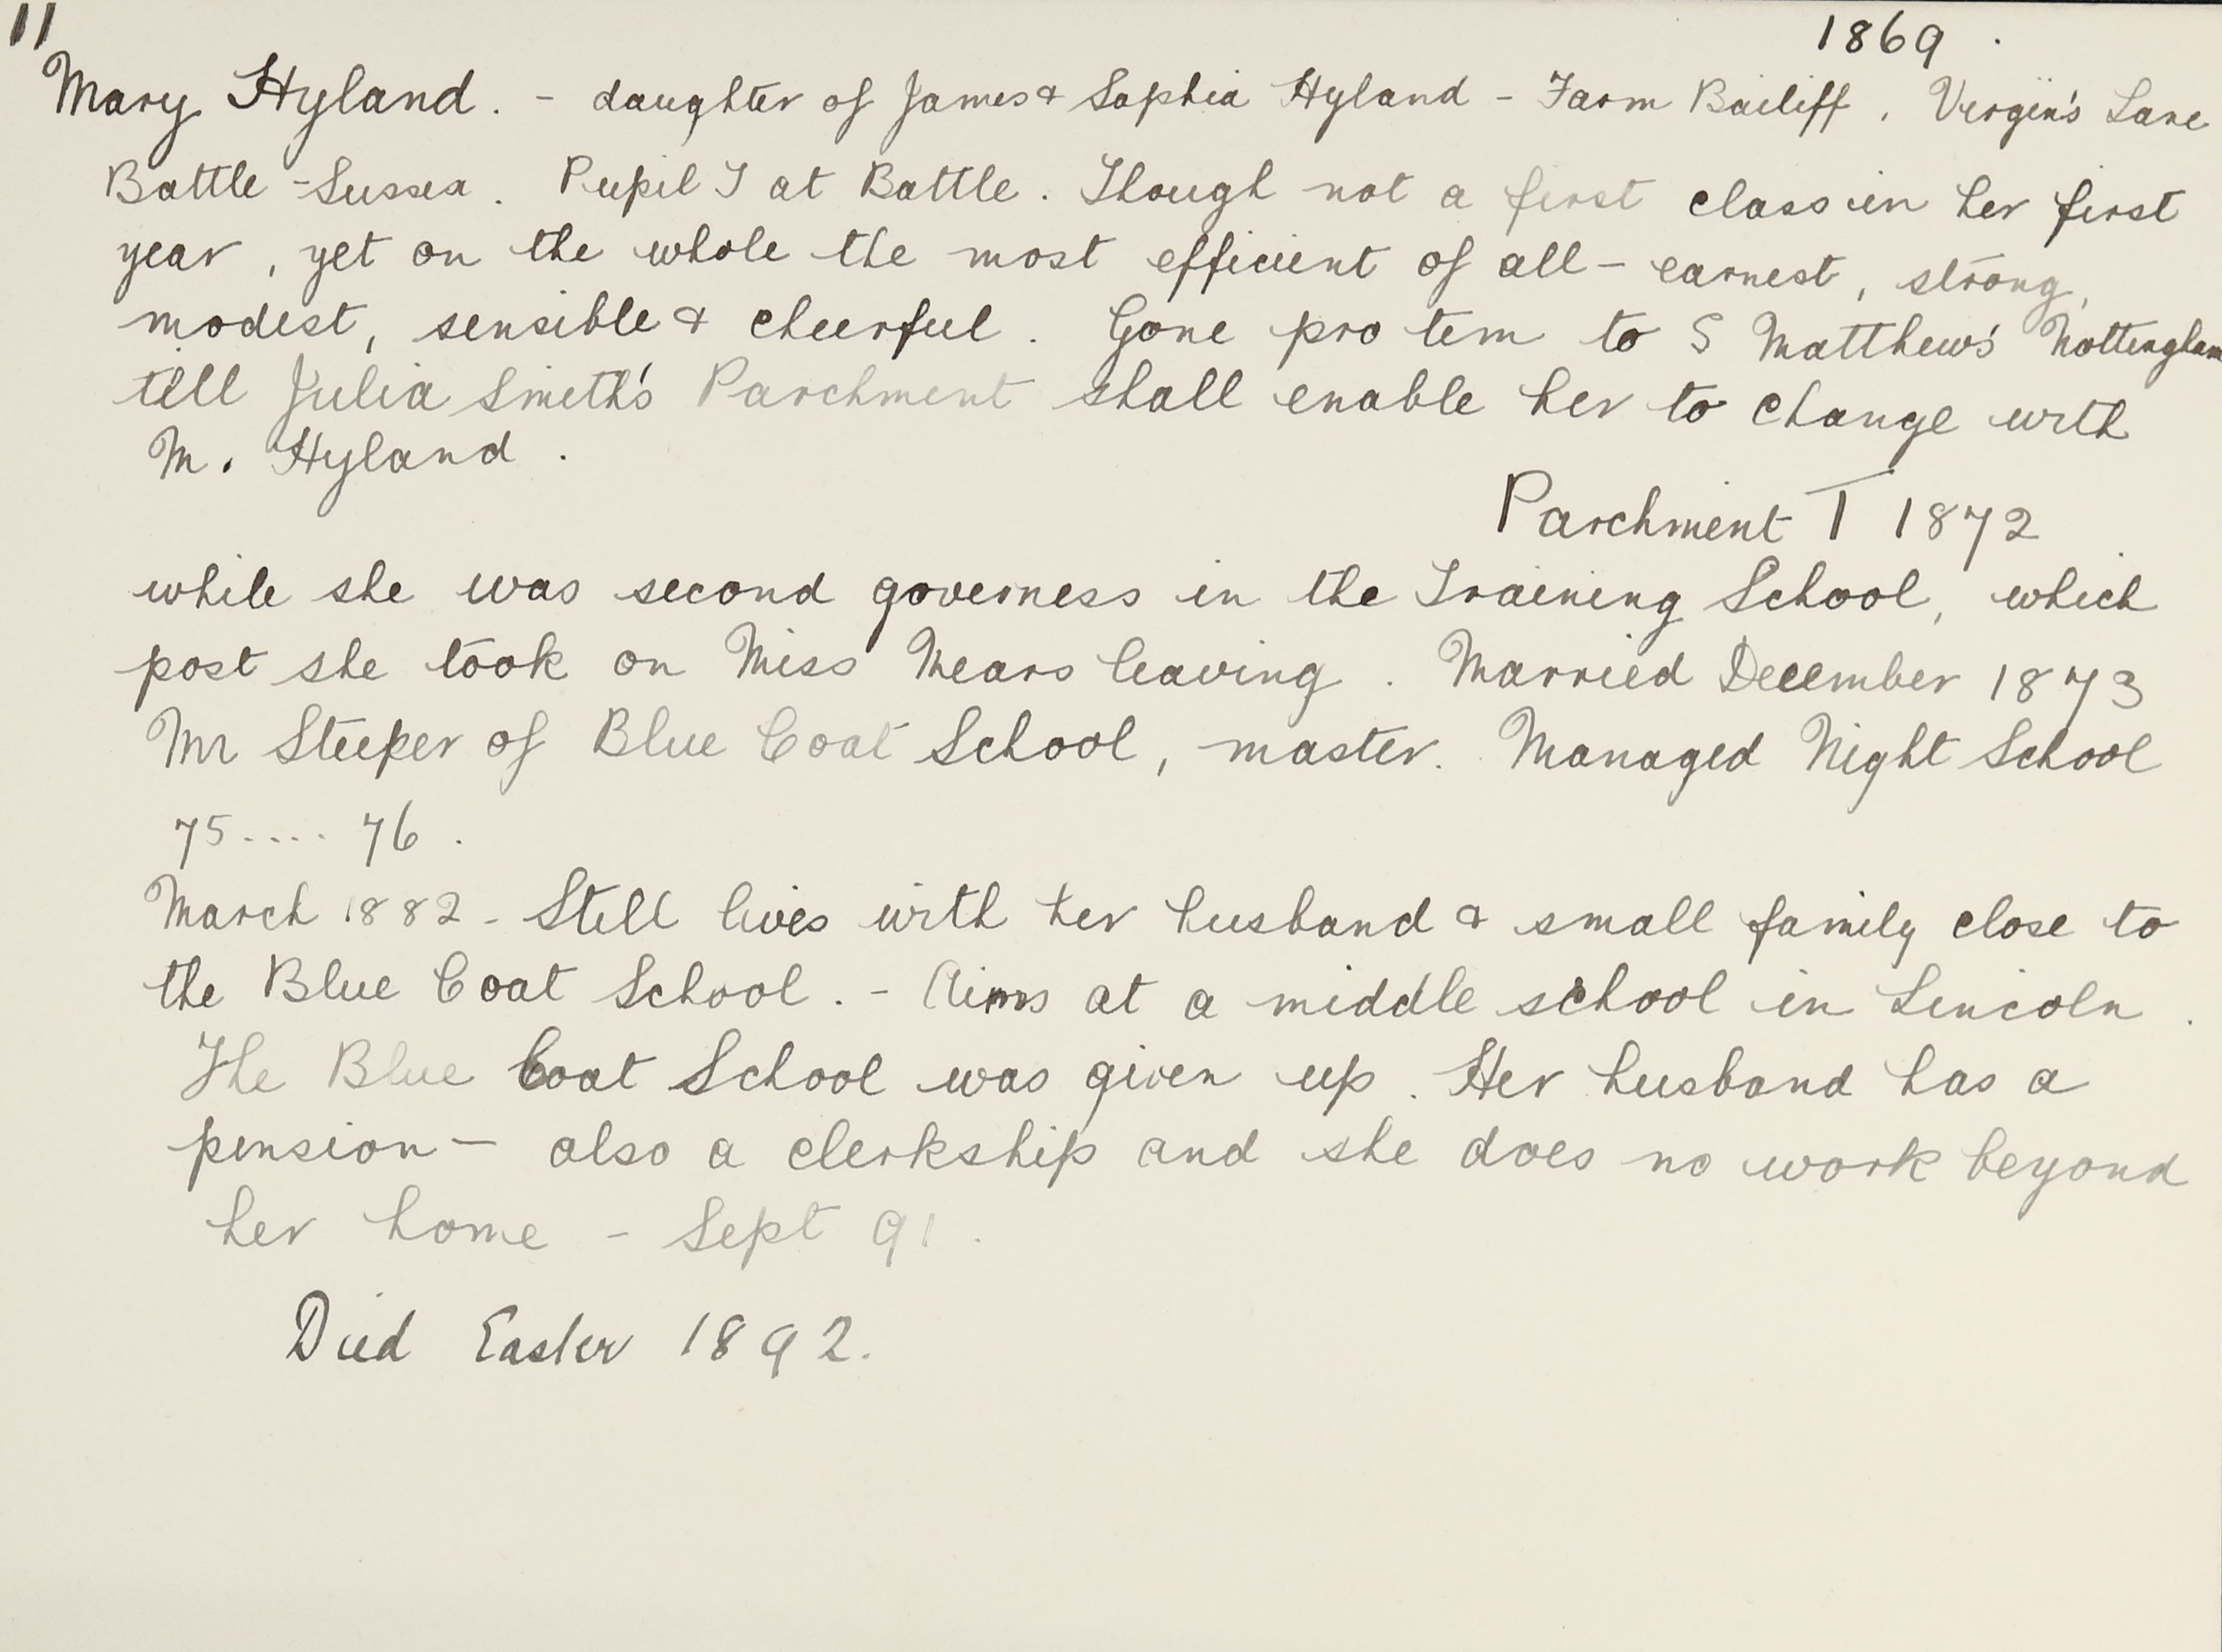 11
1869.
Mary Hyland. - daughter of James & Sophia Hyland - Farm Bailiff, Virgin's Lane
Battle - Sussex. Pupil T at Battle. Though not a first class in her first
year, yet on the whole the most efficient of all - earnest, strong,
modest, sensible & cheerful. Gone pro tem to S Matthew's Nottingham
till Julia Smith's Parchment shall enable her to change with
M. Hyland.
Parchment T 1872
while she was second governess in the Training School, which
post she took on Miss Mears leaving. Married December 1873
Mr Steeper of Blue Coat School, master. Managed Night School
75.... 76.
March 1882 - Still lives with her husband & small family close to
the Blue Coat School. - Aims at a middle school in Lincoln.
The Blue Coat School was given up. Her husband has a
pension - also a clerkship and she does no work beyond
her home - Sept 91.
Died Easter 1892.